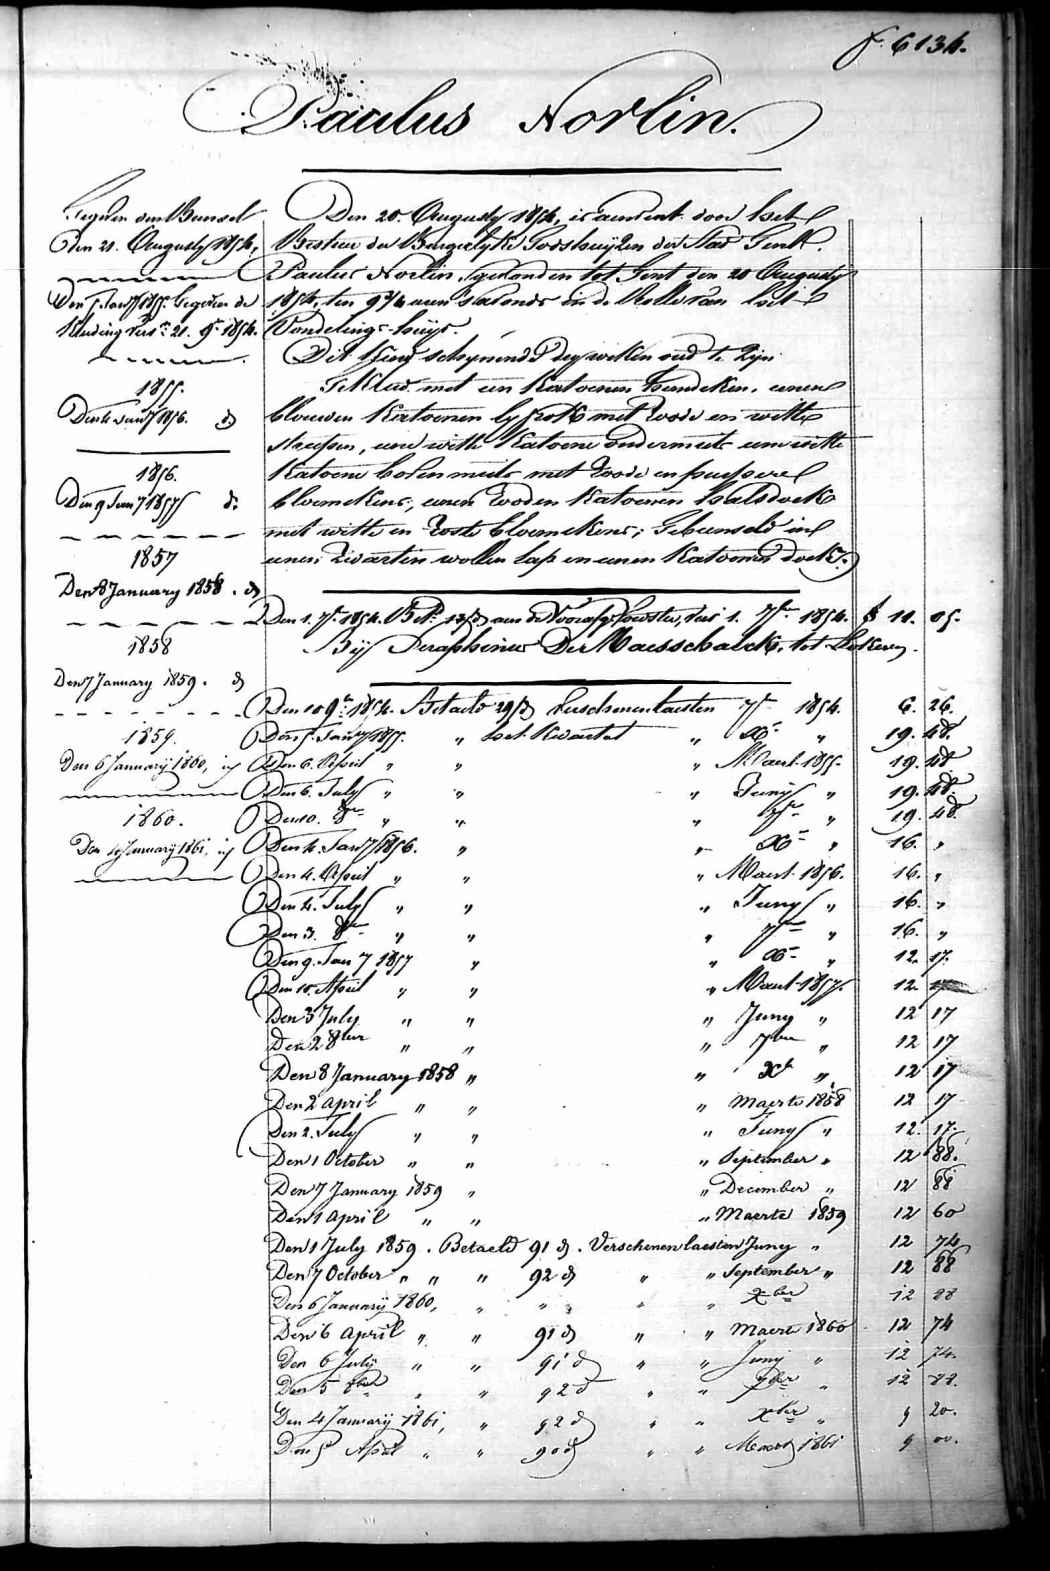 f. 6134.
Paulus Norlin.
Gegeven den Bunsel
Den 21. Augusty 1854,
Den 5 Jany 1855. Gegeven de
Kleeding vers. 21. 9r 1854.
1855.
Den 4 Jany 1856. d
1856.
Den 9 Jany 1857 d
1857
Den 8 January 1858. d
1858
Den 7 January 1859. d
1859.
Den 6 January 1860, id
1860.
Den 4 January 1861. id
Den 20. Augusty 1854, is aenveert door het
Bestuer der Burgerlyke Godshuyzen der Stad Gent.
Paulus Norlin, gevonden tot Gent den 20 Augusty
1854, ten 9 3/4 uren 's avonds in de Rolle van het
Vondelings-huys.
Dit kind schynende dry weken oud te zyn
Gekleed met een katoenen hemdeken, eenen
blouwen katoenen lyfrok met roode en witte
streepen, eene witte katoene ondermuts eene witte
katoene bovenmuts met roode en purpere
bloemekens, eenen rooden katoenen halsdoek
met witte en roste bloemekens; Gebunseld in
eenen zwarten wollen lap en eenen katoenen doek.
Den 1. 7r 1854. Bet. 13/d aen de Voorafg. Voedster, tot 1. 7r 1854. f 11. 05.
By Seraphinus De Maesschalck, tot Lokeren.
Den 10 9r 1854. Betaeld 29/d Verschenen laesten 7r 1854. 6. 26.
Den 5. Jany 1855. " het kwartael " Xr " 19. 48.
Den 6. April " " " Maert 1855. 19. 48
Den 6. July " " " Juny " 19. 48.
Den 10. 8r " " " 7r " 19. 48.
Den 4. Jany 1856. " " Xr " 16. "
Den 4. April " " " Maert 1856. 16. "
Den 4. July " " " Juny " 16. "
Den 3. 8r " " " 7r " 16. "
Den 9. Jany 1857 " " Xr " 12. 17.
Den 10. April " " " Maert 1857. 12. 17
Den 3 July " " " Juny " 12 17
Den 2 8ber " " " 7ber " 12 17
Den 8 January 1858 " " Xr " 12 17
Den 2 April " " " Maerte 1858 12 17
Den 2. July " " " Juny " 12. 17.
Den 1 October " " " September " 12 88.
Den 7 January 1859 " " December " 12 88
Den 1 April " " " Maerte 1859 12 60
Den 1 July 1859. Betaeld 91 d. Verschenen laesten Juny " 12 74
Den 7 October " " " 92 d " " September " 12 88
Den 6 January 1860, " " " " " Xber 12 88
Den 6 April " " 91 d " " Maert 1860 12 74
Den 6 July " " 91 d " " Juny " 12 74.
Den 5 8ber " " 92 d " " 7ber " 12 88.
Den 4 January 1861, " 92 d " " Xber " 9 20.
Den 5 April " " 90 d " " Maert 1861 9 00.